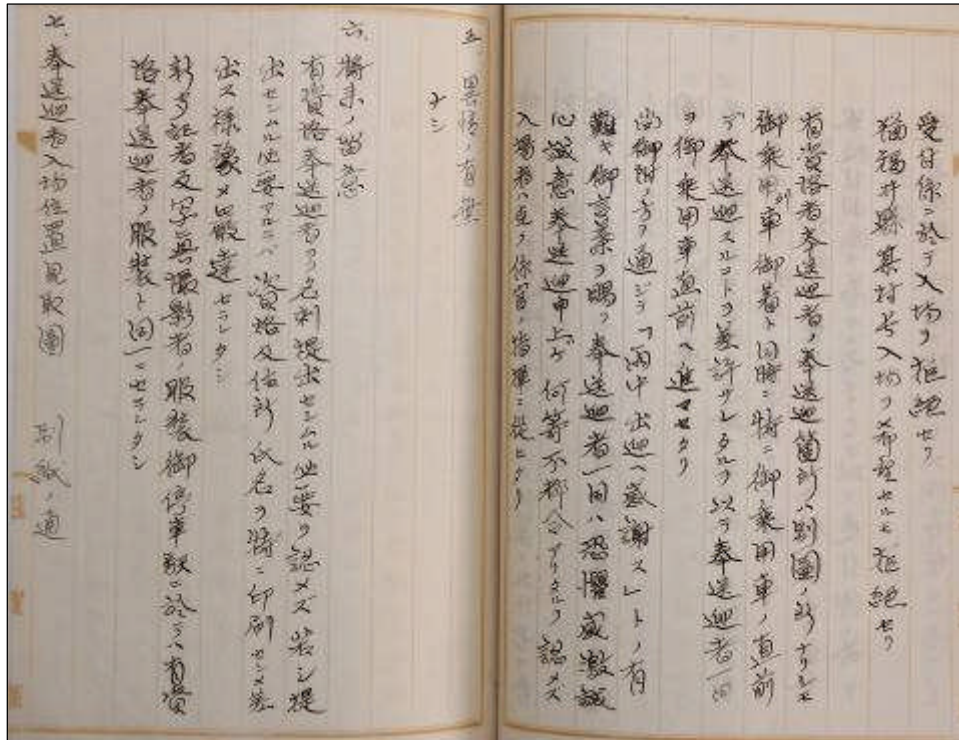 受付係ニ於テ入場ヲ拒絶セリ
福井縣某村長入場ヲ希望セルモ拒絶セリ
有資格者奉送迎者ノ奉送迎箇所ハ別圖ノ所ナリシモ
御乗用車御着ト同時ニ特ニ御乗用車ノ直前
デ奉送迎スルコトヲ差許サレタルヲ以テ奉送迎者一同
ヲ御乗用車直前ヘ進マセタリ
尚御附ノ方ヲ通ジテ「雨中出迎ヘ感謝ス」トノ有
難キ御言葉ヲ賜リ奉送迎者一同ハ恐懼感激誠
心誠意奉送迎申上ゲ何等不都合ナカリタルヲ認メズ
入場者ハ克ク係官ノ指揮ニ従ヒタリ
五、異情ノ有無
ナシ
六、将来ノ留意
有資格奉送迎者ヨリ名刺提出セシムル必要ヲ認メズ若シ提
出センムル必要アルニハ資格及住所氏名ヲ特ニ印刷セシメ差
出ス様豫メ示達セラレタシ
新聞記者及写真撮影者ノ服装御停車駅ニ於テハ有資
格奉送迎者ノ服装ト同一ニセラレタシ
七、奉送迎者入場位置見取圖 別紙ノ通